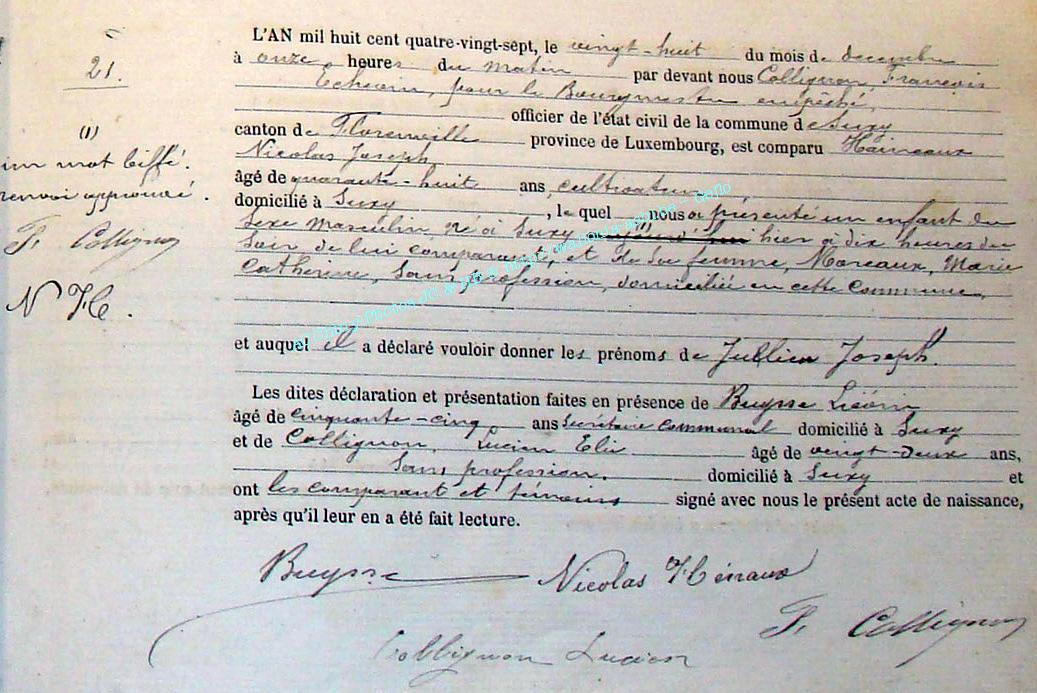 21.
(1)
un mot biffé.
renvoi approuvé.
F. Collignon
N H.
L'AN mil huit cent quatre-vingt-sept, le vingt-huit du mois de decembre
à onze heures du matin par devant nous Collignon, François
Echevin, pour le Bourgmestre empêché,
officier de l'état civil de la commune de Suxy
canton de Florenville province de Luxembourg, est comparu
Nicolas Joseph,
âgé de quarante-huit ans, cultivateur
domicilié à Suxy, le quel nous a présenté un enfant du
Sexe masculin né à Suxy (1) hier à dix heures du
Soir, de lui comparant, et de Sa femme, Moreaux, Marie
Catherine, Sans profession, domiciliée en cette Commune,
et auquel il a déclaré vouloir donner les prénoms de Jullien Joseph.
Les dites déclaration et présentation faites en présence de Buysse
âgé de cinquante-cinq ans Secrétaire Communal domicilié à Suxy
et de Collignon, Lucien Elie âgé de vingt-deux ans,
Sans profession. domicilié à Suxy et
ont les comparant et témoins signé avec nous le présent acte de naissance,
après qu'il leur en a été fait lecture.
Buysse Nicolas Hénaux
F. Collignon
Collignon Lucien